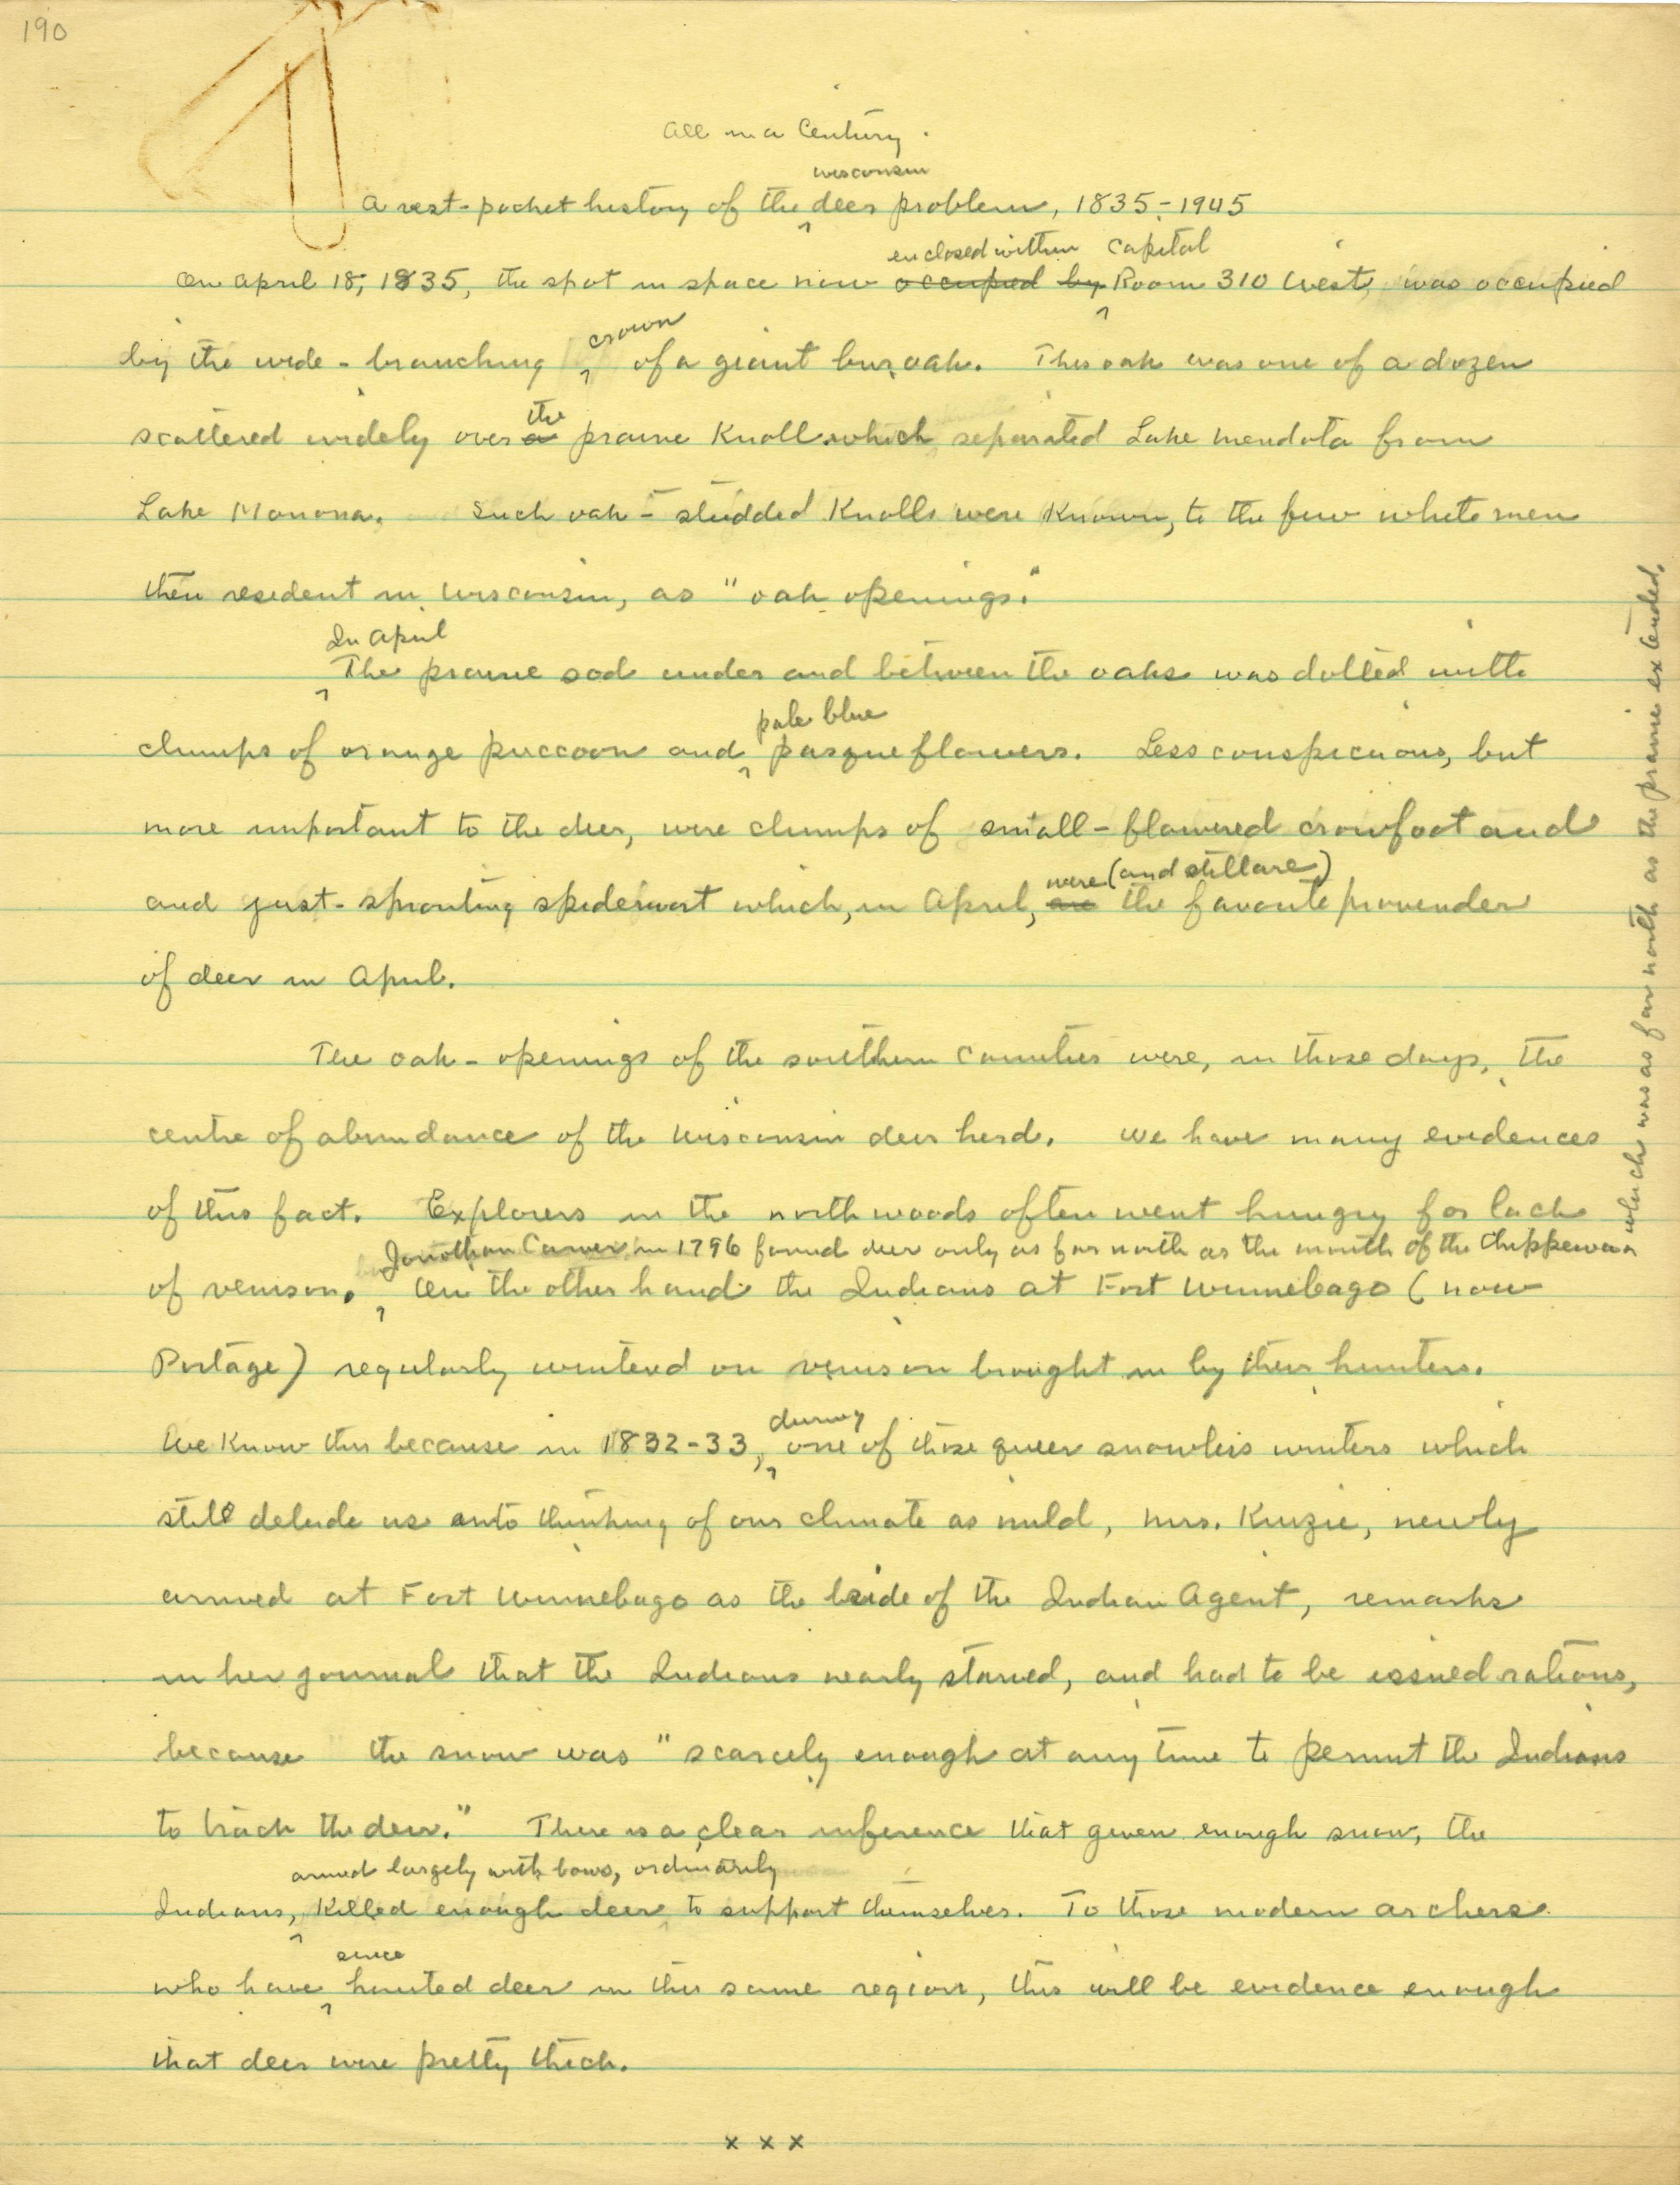 190
All in a Century.
wisconsin
A vest-pocket history of the deer problem, 1835-1945
enclosed within Capital
On April 18, 1835, the spot in space now occupied by Room 310 West, was occupied
crown
by the wide-branching of a giant bur oak. This oak was one of a dozen
the
scattered widely over a prairie Knoll which separated Lake Mendota from
Lake Monona. Such oak-studded Knolls were Known, to the few white men
then resident in Wisconsin, as "oak openings."
In April
The prairie sod under and between the oaks was dotted with
pale blue
clumps of orange puccoon and pasqueflowers. Less conspicuous, but
more important to the deer, were clumps of small-flowered crowfoot and
were (and still are)
and just-sprouting spiderwort which, in April, are the favorite provender
of deer in April.
The oak-openings of the southern counties were, in those days, the
centre of abundance of the Wisconsin deer herd. We have many evidences
of this fact. Explorers in the north woods often went hungry for lack
Jonothan Carver in 1796 found deer only as far north as the mouth of the Chippewa
which was as far north as the prairie extended.
of venison. On the other hand the Indians at Fort Winnebago (now
Portage) regularly wintered on venison brought in by their hunters.
during
We Know this because in 1832-33, one of those queer snowless winters which
still delude us into thinking of our climate as mild, Mrs. Kinzie, newly
arrived at Fort Winnebago as the bride of the Indian Agent, remarks
in her journal that the Indians nearly starved, and had to be issued rations,
because the snow was "scarcely enough at any time to permit the Indians
to track the deer." There is a clear inference that given enough snow, the
armed largely with bows, ordinarily
Indians, Killed enough deer to support themselves. To those modern archers
since
who have hunted deer in this same region, this will be evidence enough
that deer were pretty thick.
x x x